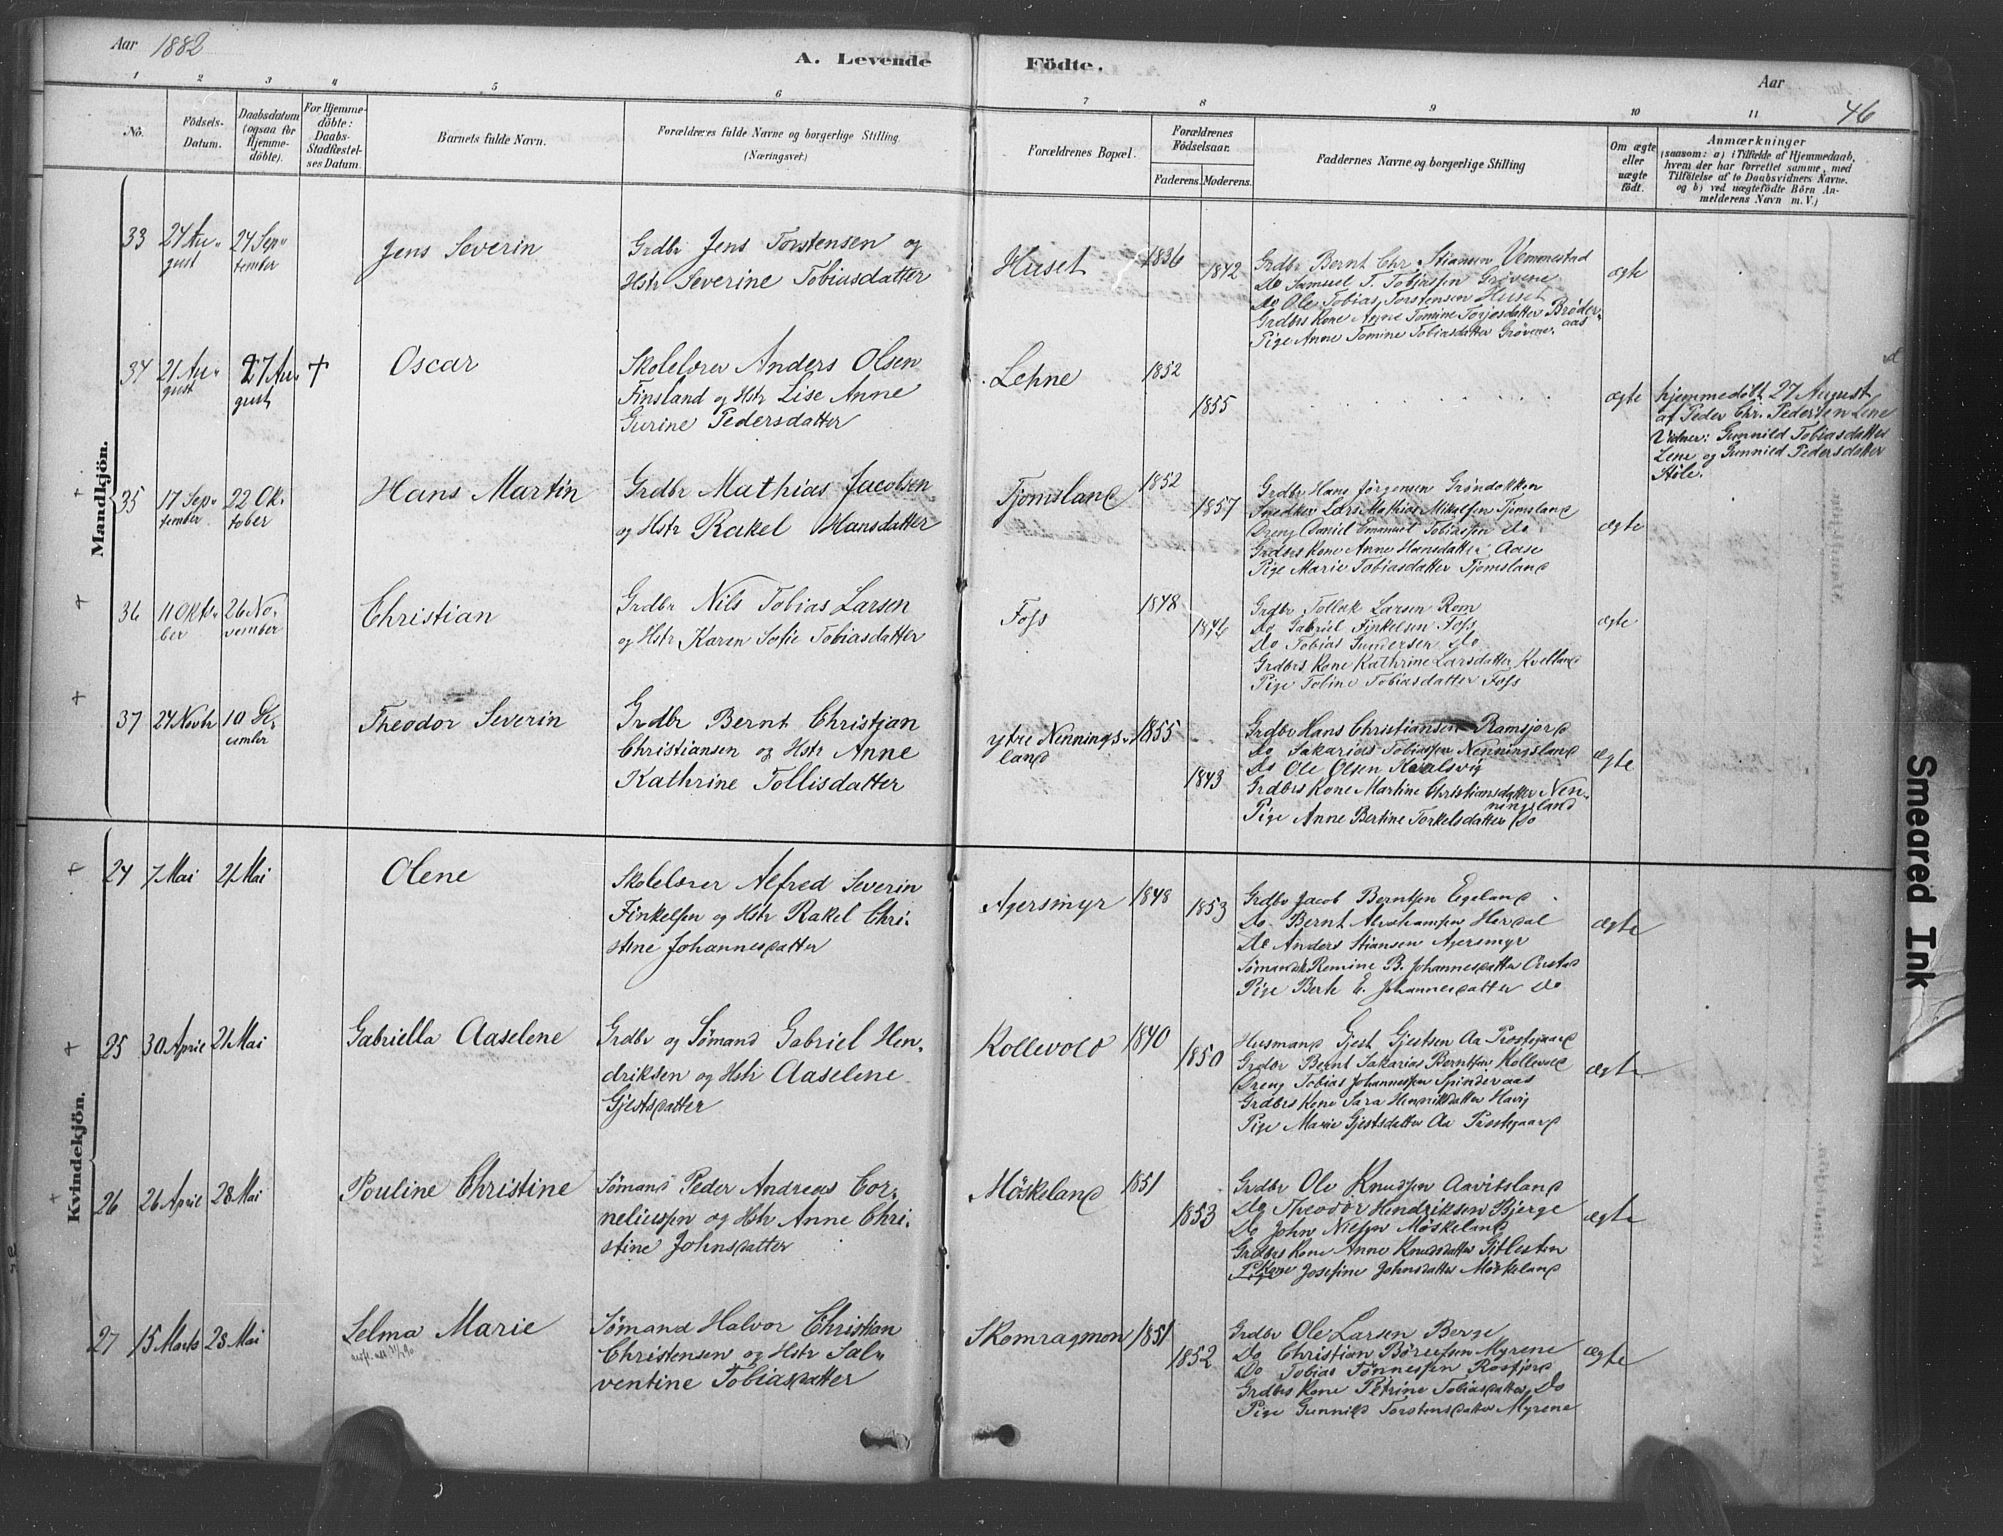 Aar 1882
A. Levende Födte.
Aar
46
1 2 3 4 5 6 7 8 9 10 11
No.
Födsels-Datum.
Daabsdatum (ogsaa for Hjemmedöbte).
For Hjemmedöbte: Daabs-Stadfæstelses Datum.
Barnets fulde Navn.
Forældrenes fulde Navne og borgerlige Stilling (Næringsvei)
Forældrenes Bopæl.
Forældrenes Födselsaar.
Faderens. Moderens.
Faddernes Navne og borgerlige Stilling
Om ægte eller uægte födt.
Anmærkninger
(saasom: a) i Tilfælde af Hjemmedaab, hvem der har forrettet samme, med Tilföielse af to Daabsvidners Navne. og b) ved uægtefödte Börn Anmelderens Navn m. V.)
Mandkjön.
33 24 Au-gust 24 Sep-tember
Jens Severin
Grdbr Jens Torstensen og
Hstr Severine Tobiasdatter
Huset 1836 1842
Grdbr Bernt Chr Stiansen Vemmestad
Do Samuel T. Tobiassen
Do Ole Tobias Torstensen Huset
Grdbrs Kone Tomine Torjusdatter Brøder-aas
Pige Anne Tomine Tobiasdatter
ægte
34 21 Au-gust 27 Au-gust +
Oscar
Skolelærer Anders Olsen
Finsland og Hstr Lise Anne
Gurine Pedersdatter
Lehne 1852 1855
ægte
hjemmedöbt 27 August
af Peder Chr. Pedersen Lene
Vidner: Gunnild Tobiasdatter
Lene og Gunnild Pedersdatter
Støle.
+ 35 17 Sep-tember 22 Ok-tober
Hans Martin
Grdbr Mathias Jacobsen
og Hstr Rakel Hansdatter
Tjomsland 1852 1857
Grdbr Hans Jörgensen Gröndokken
Lars Mathias Mikalsen Tjomsland
Dreng Daniel Emanuel Tobiassen Do
Grdbrs Kone Anne Hansdatter Aase
Pige Marie Tobiasdatter Tjomsland
ægte
+ 36 11 Okto-ber 26 No-vember
Christian
Grdbr Nils Tobias Larsen
og Hstr Karen Sofie Tobiasdatter
Foss 1848 1846
Grdbr Tollak Larsen Rom
Do Gabriel Finkelsen Foss
Do Tobias Gundersen Do
Grdbrs Kone Kathrine Larsdatter Kvelland
Pige Tobine Tobiasdatter Foss
ægte
+ 37 24 Novbr 10 De-cember
Theodor Severin
Grdbr Bernt Christian
Christiansen og Hstr Anne
Kathrine Tollisdatter
ytre Nennings-land 1855 1843
Grdbr Hans Christiansen Ramsjord
Do Sakarias Tobiassen Nenningsland
Do Ole Olsen Kvalsvig
Grdbrs Kone Martine Christiansdatter Nen-ningsland
Pige Anne Bertine Torkelsdatter Do
ægte
Kvindekjön.
+ 24 7 Mai 21 Mai
Olene
Skolelærer Alfred Severin
Finkelsen og Hstr Rakel Chri-
stine Johannesdatter
Agersmyr 1848 1853
Grdbr Jacob Berntsen Egeland
Do Bernt Abrahamsen Herdal
Do Anders Stiansen Agersmyr
Remine B. Johannesdatter
Pige Berte E. Johannesdatter Do
ægte
+ 25 30 April 21 Mai
Gabriella Aaselene
Grdbr og Sømand Gabriel Hen-
driksen og Hstr Aaselene
Gjestsdatter
Kollevold 1840 1850
Husmand Gjest Gjestsen Aa Prostgaard
Grdbr Bernt Sakarias Berntsen Kollevold
Dreng Tobias Johannessen Spinderaas
Grdbrs Kone Sara Henriksdatter Havig
Pige Marie Gjestsdatter Aa Prostgaard
ægte
+ 26 26 April 28 Mai
Pouline Christine
Sømand Peder Andreas Cor-
neliussen og Hstr Anne Chri-
stine Johnsdatter
Möskeland 1851 1853
Grdbr Ole Knudsen Aavitsland
Do Theodor Hendriksen Bjerge
Do John Nielsen Möskeland
Grdbrs Kone Anne Knudsdatter Gitlesten
Kone Josefine Johnsdatter Möskeland
ægte
27 15 Marts 28 Mai
Selma Marie
Sømand Halvor Christian
Christensen og Hstr Sal-
ventine Tobiasdatter
Skomragmon 1851 1852
Grdbr Ole Larsen Berge
Do Christian Börresen Myrene
Do Tobias Tönnessen Rosfjord
Grdbrs Kone Petrine Tobiasdatter Do
Pige Gunnild Torstensdatter Myrene
ægte
Smeared Ink